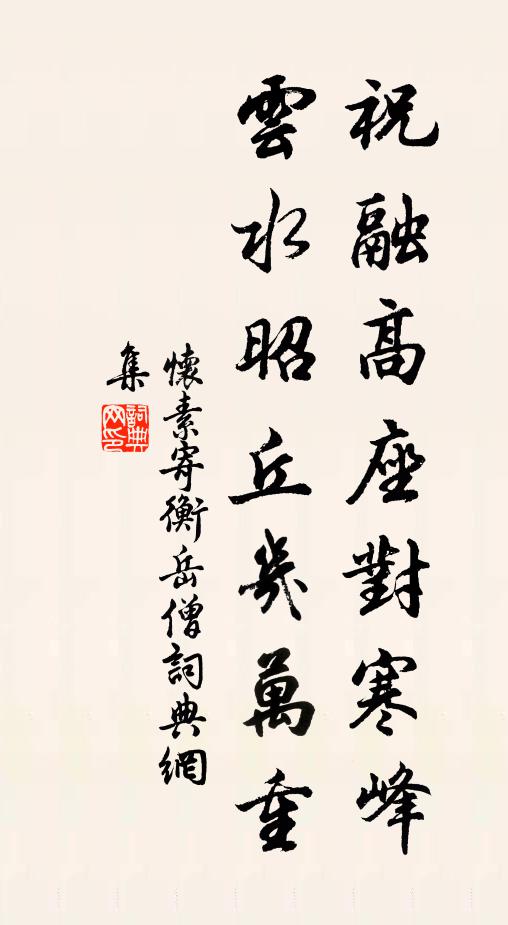 祝融高座對寒峰
雲水昭丘幾萬重
懷素寄衡岳僧詞典網
集
詞典
网印